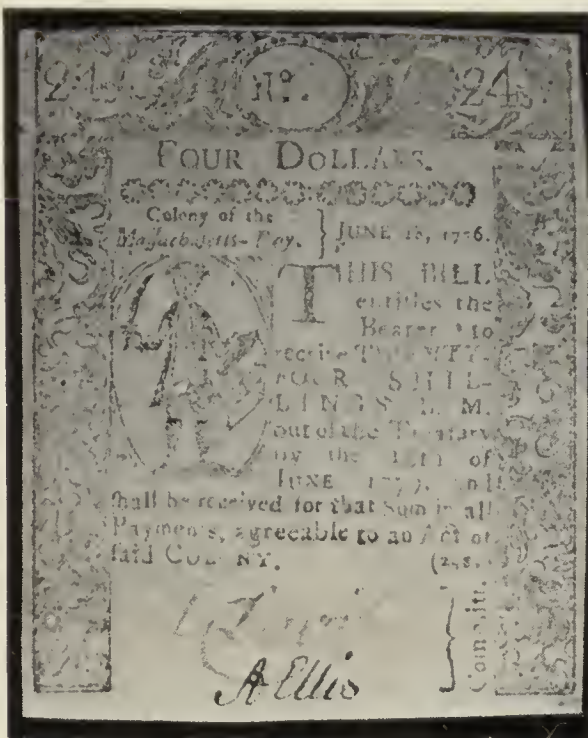 24 No. 24
FOUR DOLLARS.
Colony of the
Massachusetts-Bay. } JUNE 18, 1776.
THIS BILL
entitles the
Bearer to
receive TWENTY-
FOUR SHIL-
LINGS L. M.
out of the Treasury
by the of
JUNE and
shall be received for that Sum in all
Payments, agreeable to an Act of
said COLONY. (24s.)
} Committee.
A Ellis